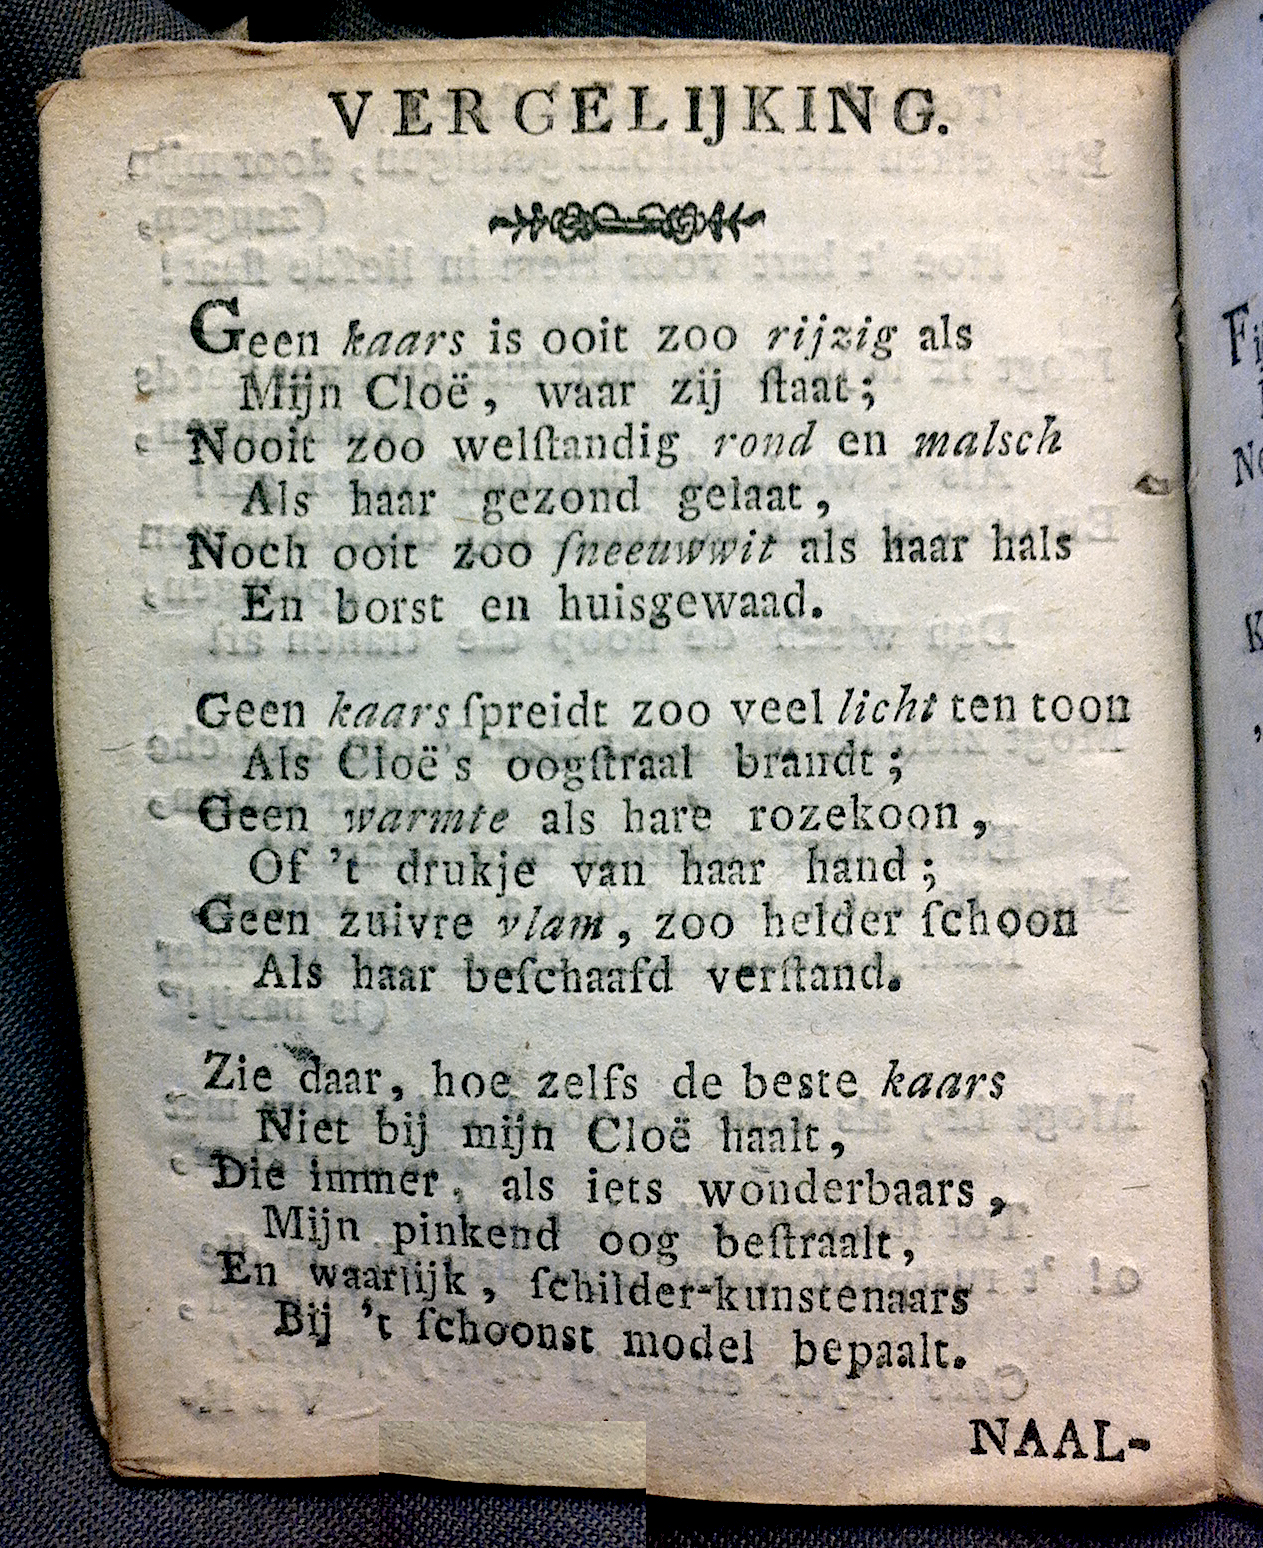 VERGELIJKING.
Geen kaars is ooit zoo rijzig als
Mijn Cloë, waar zij ſtaat;
Nooit zoo welſtandig rond en malsch
Als haar gezond gelaat,
Noch ooit zoo ſneeuwwit als haar hals
En borst en huisgewaad.
Geen kaars ſpreidt zoo veel licht ten toon
Als Cloë's oogſtraal brandt;
Geen warmte als hare rozekoon,
Of 't drukje van haar hand;
Geen zuivre vlam, zoo helder ſchoon
Als haar beſchaafd verſtand.
Zie daar, hoe zelfs de beste kaars
Niet bij mijn Cloë haalt,
Die immer, als iets wonderbaars,
Mijn pinkend oog beſtraalt,
En waarlijk, ſchilder-kunstenaars
Bij 't ſchoonst model bepaalt.
NAAL-